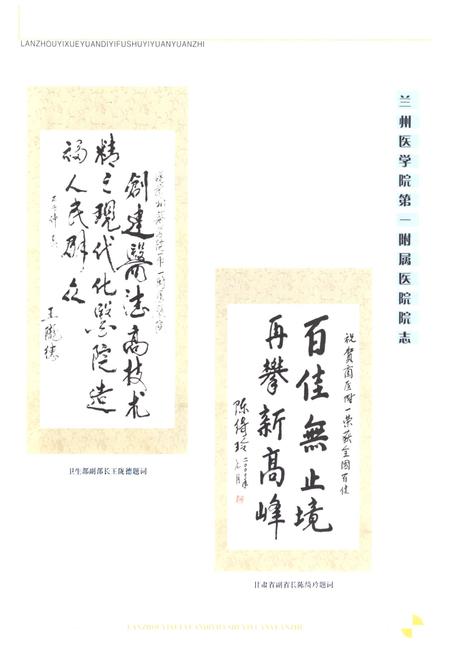 LANZHOUYIXUEYUANDIYIFUSHUYIYUANYUANZHI
兰州医学院第一附属医院院志
創建醫德高技术
精之現代化医院造
福人民群众
王陇德
卫生部副部长王陇德题词
祝贺兰医附一荣获全国百佳
百佳無止境
再攀新高峰
陈绮玲二〇〇〇年
甘肃省副省长陈绮玲题词
LANZHOUYIXUEYUANDIYIFUSHUYIYUANYUANZHI